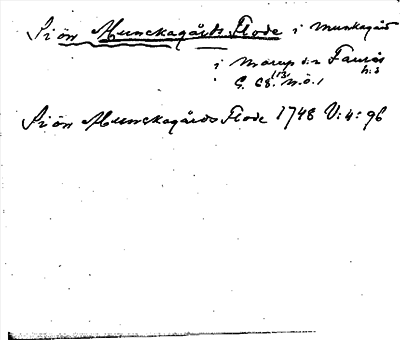 Siön Munckagårds Flode i Munkagård
i Morup s:n Faurås
h:d
G. C8. 113 N.Ö.1
Siön Munckagårds Flode 1748 V:4:96